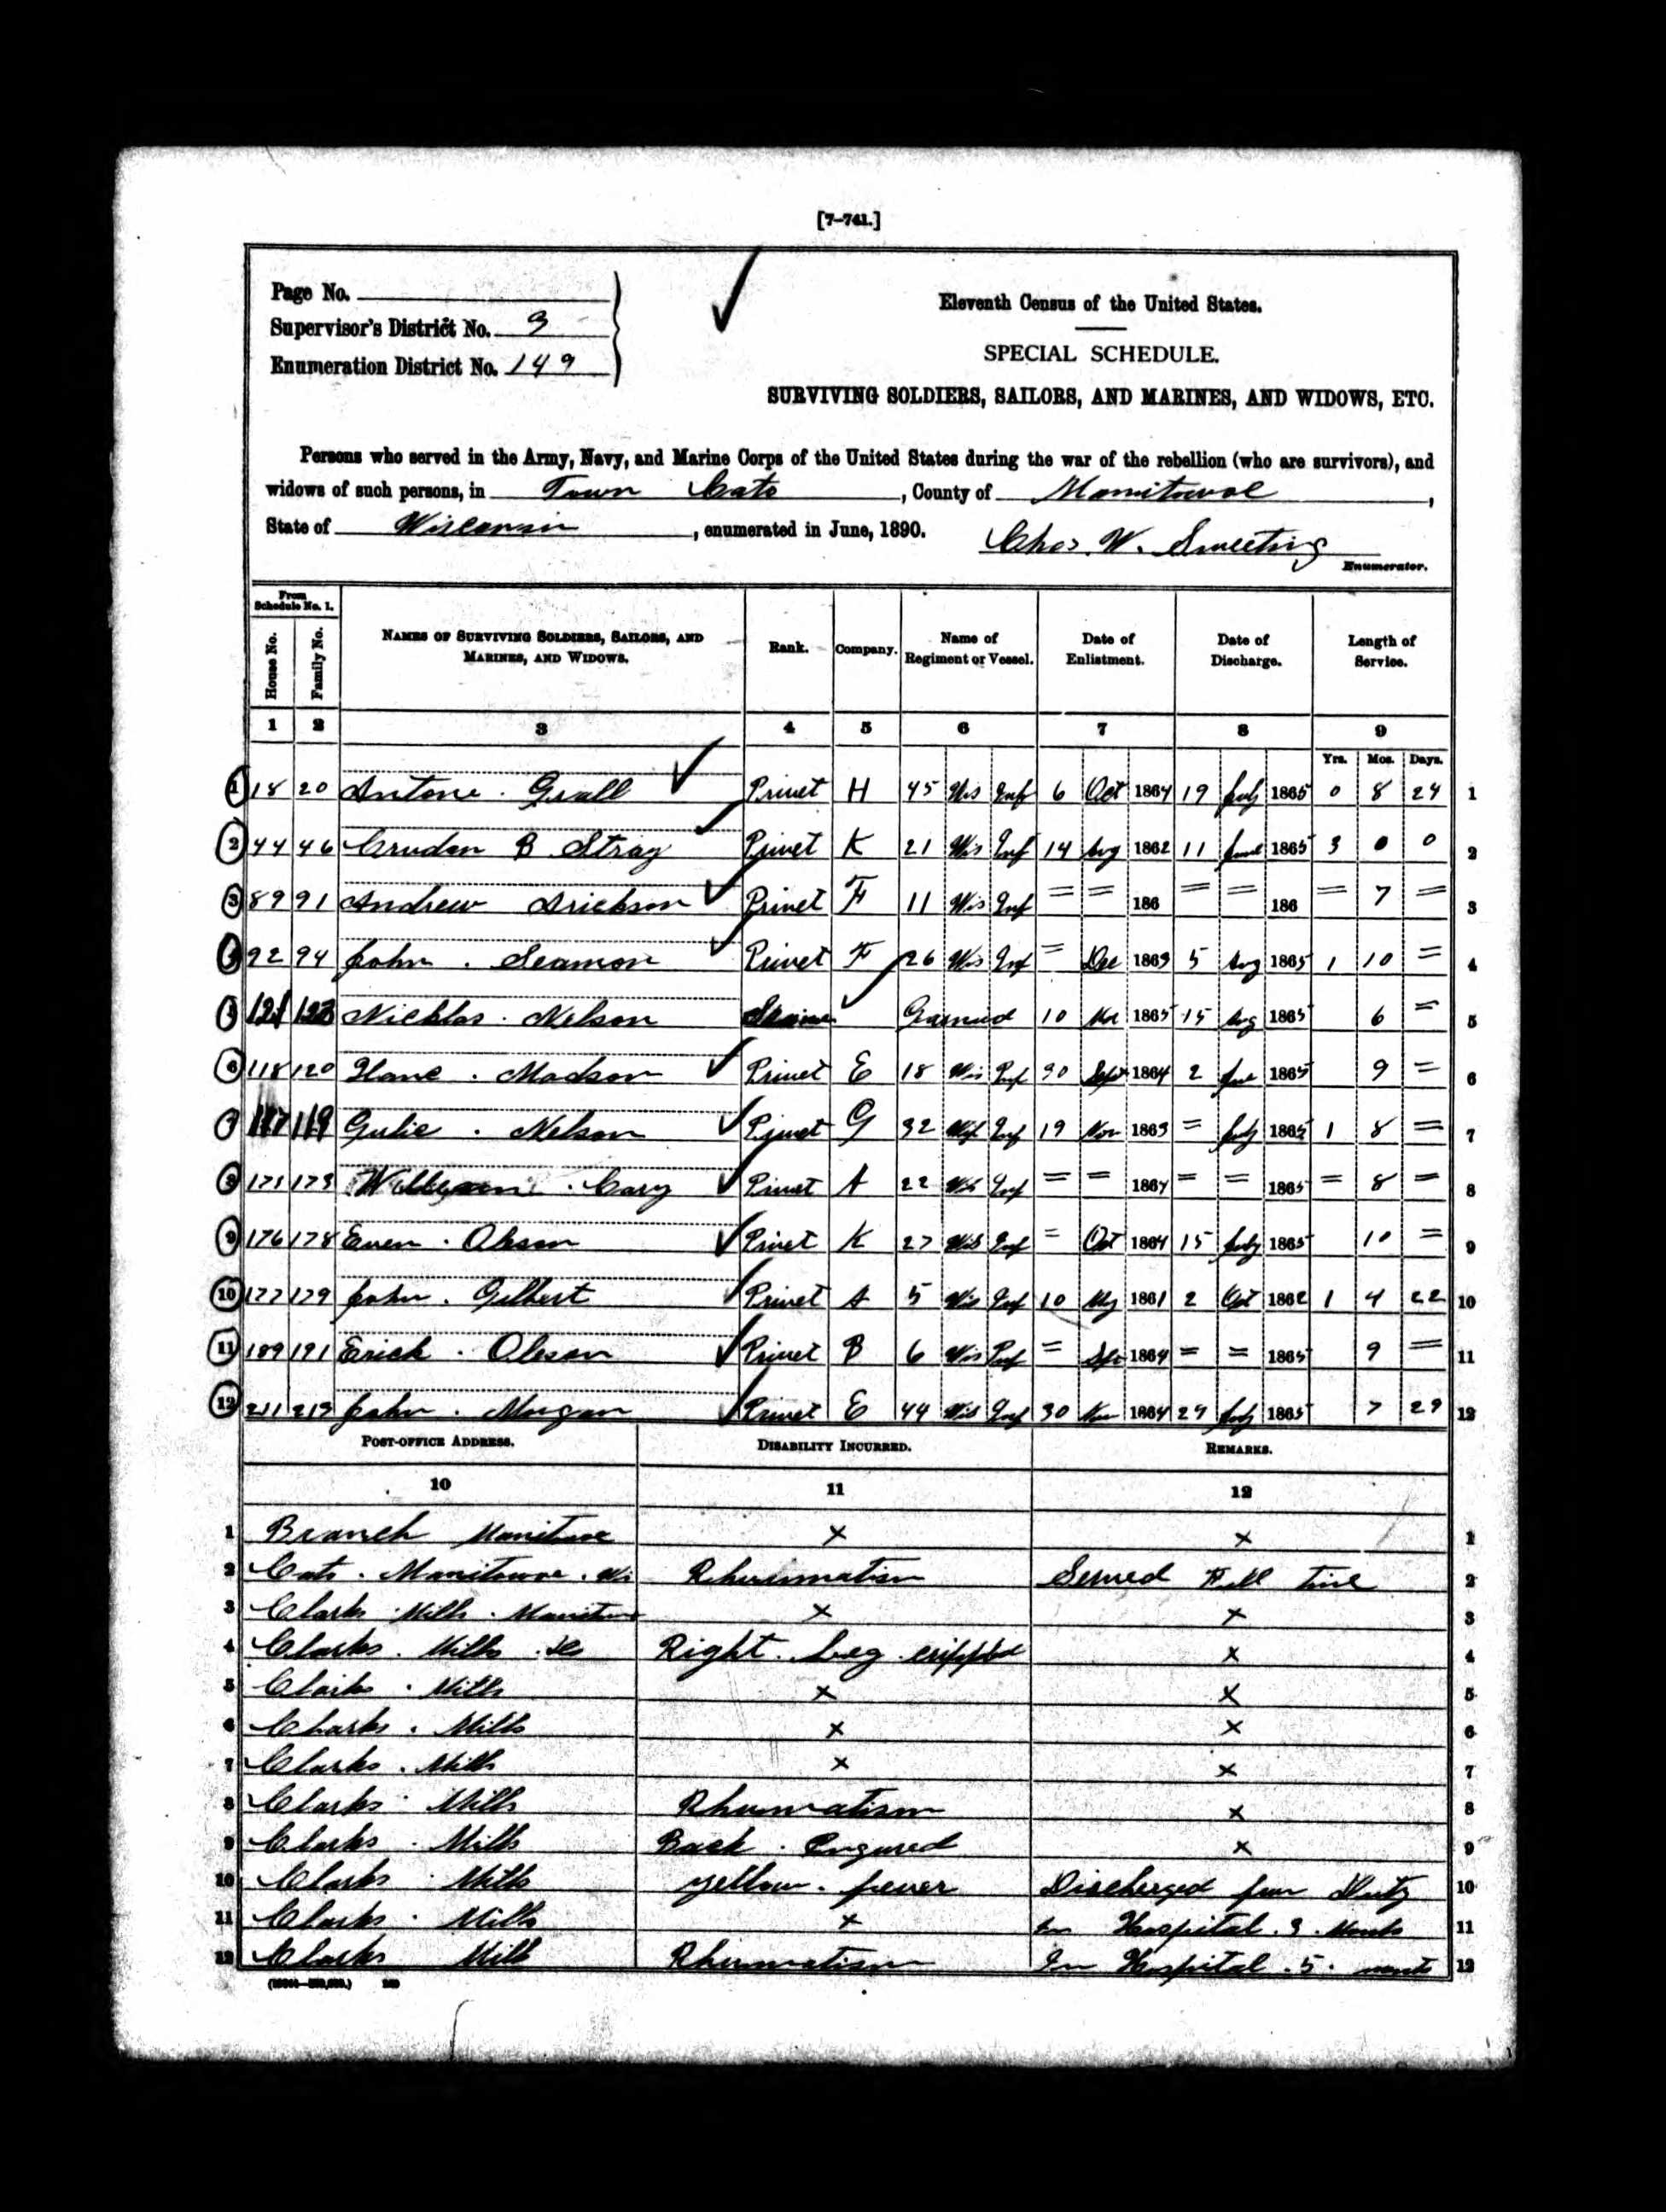 [7-741.]
Page No.
Supervisor's District No. 3
Enumeration District No. 149
Eleventh Census of the United States.
SPECIAL SCHEDULE.
SURVIVING SOLDIERS, SAILORS, AND MARINES, AND WIDOWS, ETC.
Persons who served in the Army, Navy, and Marine Corps of the United States during the war of the rebellion (who are survivors), and
widows of such persons, in Town Cato, County of Manitowoc,
State of Wisconsin, enumerated in June, 1890. Chas. W. Sweeting
Enumerator.
From Schedule No. 1.
House No. Family No. NAMES OF SURVIVING SOLDIERS, SAILORS, AND MARINES, AND WIDOWS. Rank. Company. Name of Regiment or Vessel. Date of Enlistment. Date of Discharge. Length of Service.
1 2 3 4 5 6 7 8 9
Yrs. Mos. Days.
1 18 20 Antone . Grall Privet H 45 Wis Inf 6 Oct 1864 19 July 1865 0 8 24 1
2 44 46 B Privet K 21 Wis Inf 14 Aug 1862 11 June 1865 3 0 0 2
3 89 91 Andrew Privet F 11 Wis Inf = = 186 = = 186 = 7 = 3
4 92 94 John . Seamon Privet F 26 Wis Inf = Dec 1863 5 Aug 1865 1 10 = 4
5 121 123 . Nelson 10 Mar 1865 15 Aug 1865 6 = 5
6 118 120 . Madson Privet E 18 Wis Inf 30 Sept 1864 2 June 1865 9 = 6
7 117 119 Gulie . Nelson Privet G 32 Wis Inf 19 Nov 1863 = July 1865 1 8 = 7
8 171 173 William . Cary Privet A 22 Wis Inf = = 1864 = = 1865 = 8 = 8
9 176 178 Even . Oleson Privet K 27 Wis Inf = Oct 1864 15 July 1865 10 = 9
10 177 179 John . Gilbert Privet A 5 Wis Inf 10 May 1861 2 Oct 1862 1 4 22 10
11 189 191 Erick . Oleson Privet B 6 Wis Inf = 1864 = = 1865 9 = 11
12 211 213 John . Morgan Privet E 44 Wis Inf 30 Nov 1864 29 July 1865 7 29 12
POST-OFFICE ADDRESS. DISABILITY INCURRED. REMARKS.
10 11 12
1 Branch × × 1
2 Cato . Manitowoc . Wis Rheumatism Served Full time 2
3 Clarks Mills . × × 3
4 Clarks . Mills . Right . Leg . crippled × 4
5 Clarks . Mills × × 5
6 Clarks . Mills × × 6
7 Clarks . Mills × × 7
8 Clarks Mills Rhumatism × 8
9 Clarks . Mills Back . Engured × 9
10 Clarks . Mills yellow . fever Discherged from Duty 10
11 Clarks . Mills × In Hospital . 3 . 11
12 Clarks Mills Rheumatism In Hospital . 5 . 12